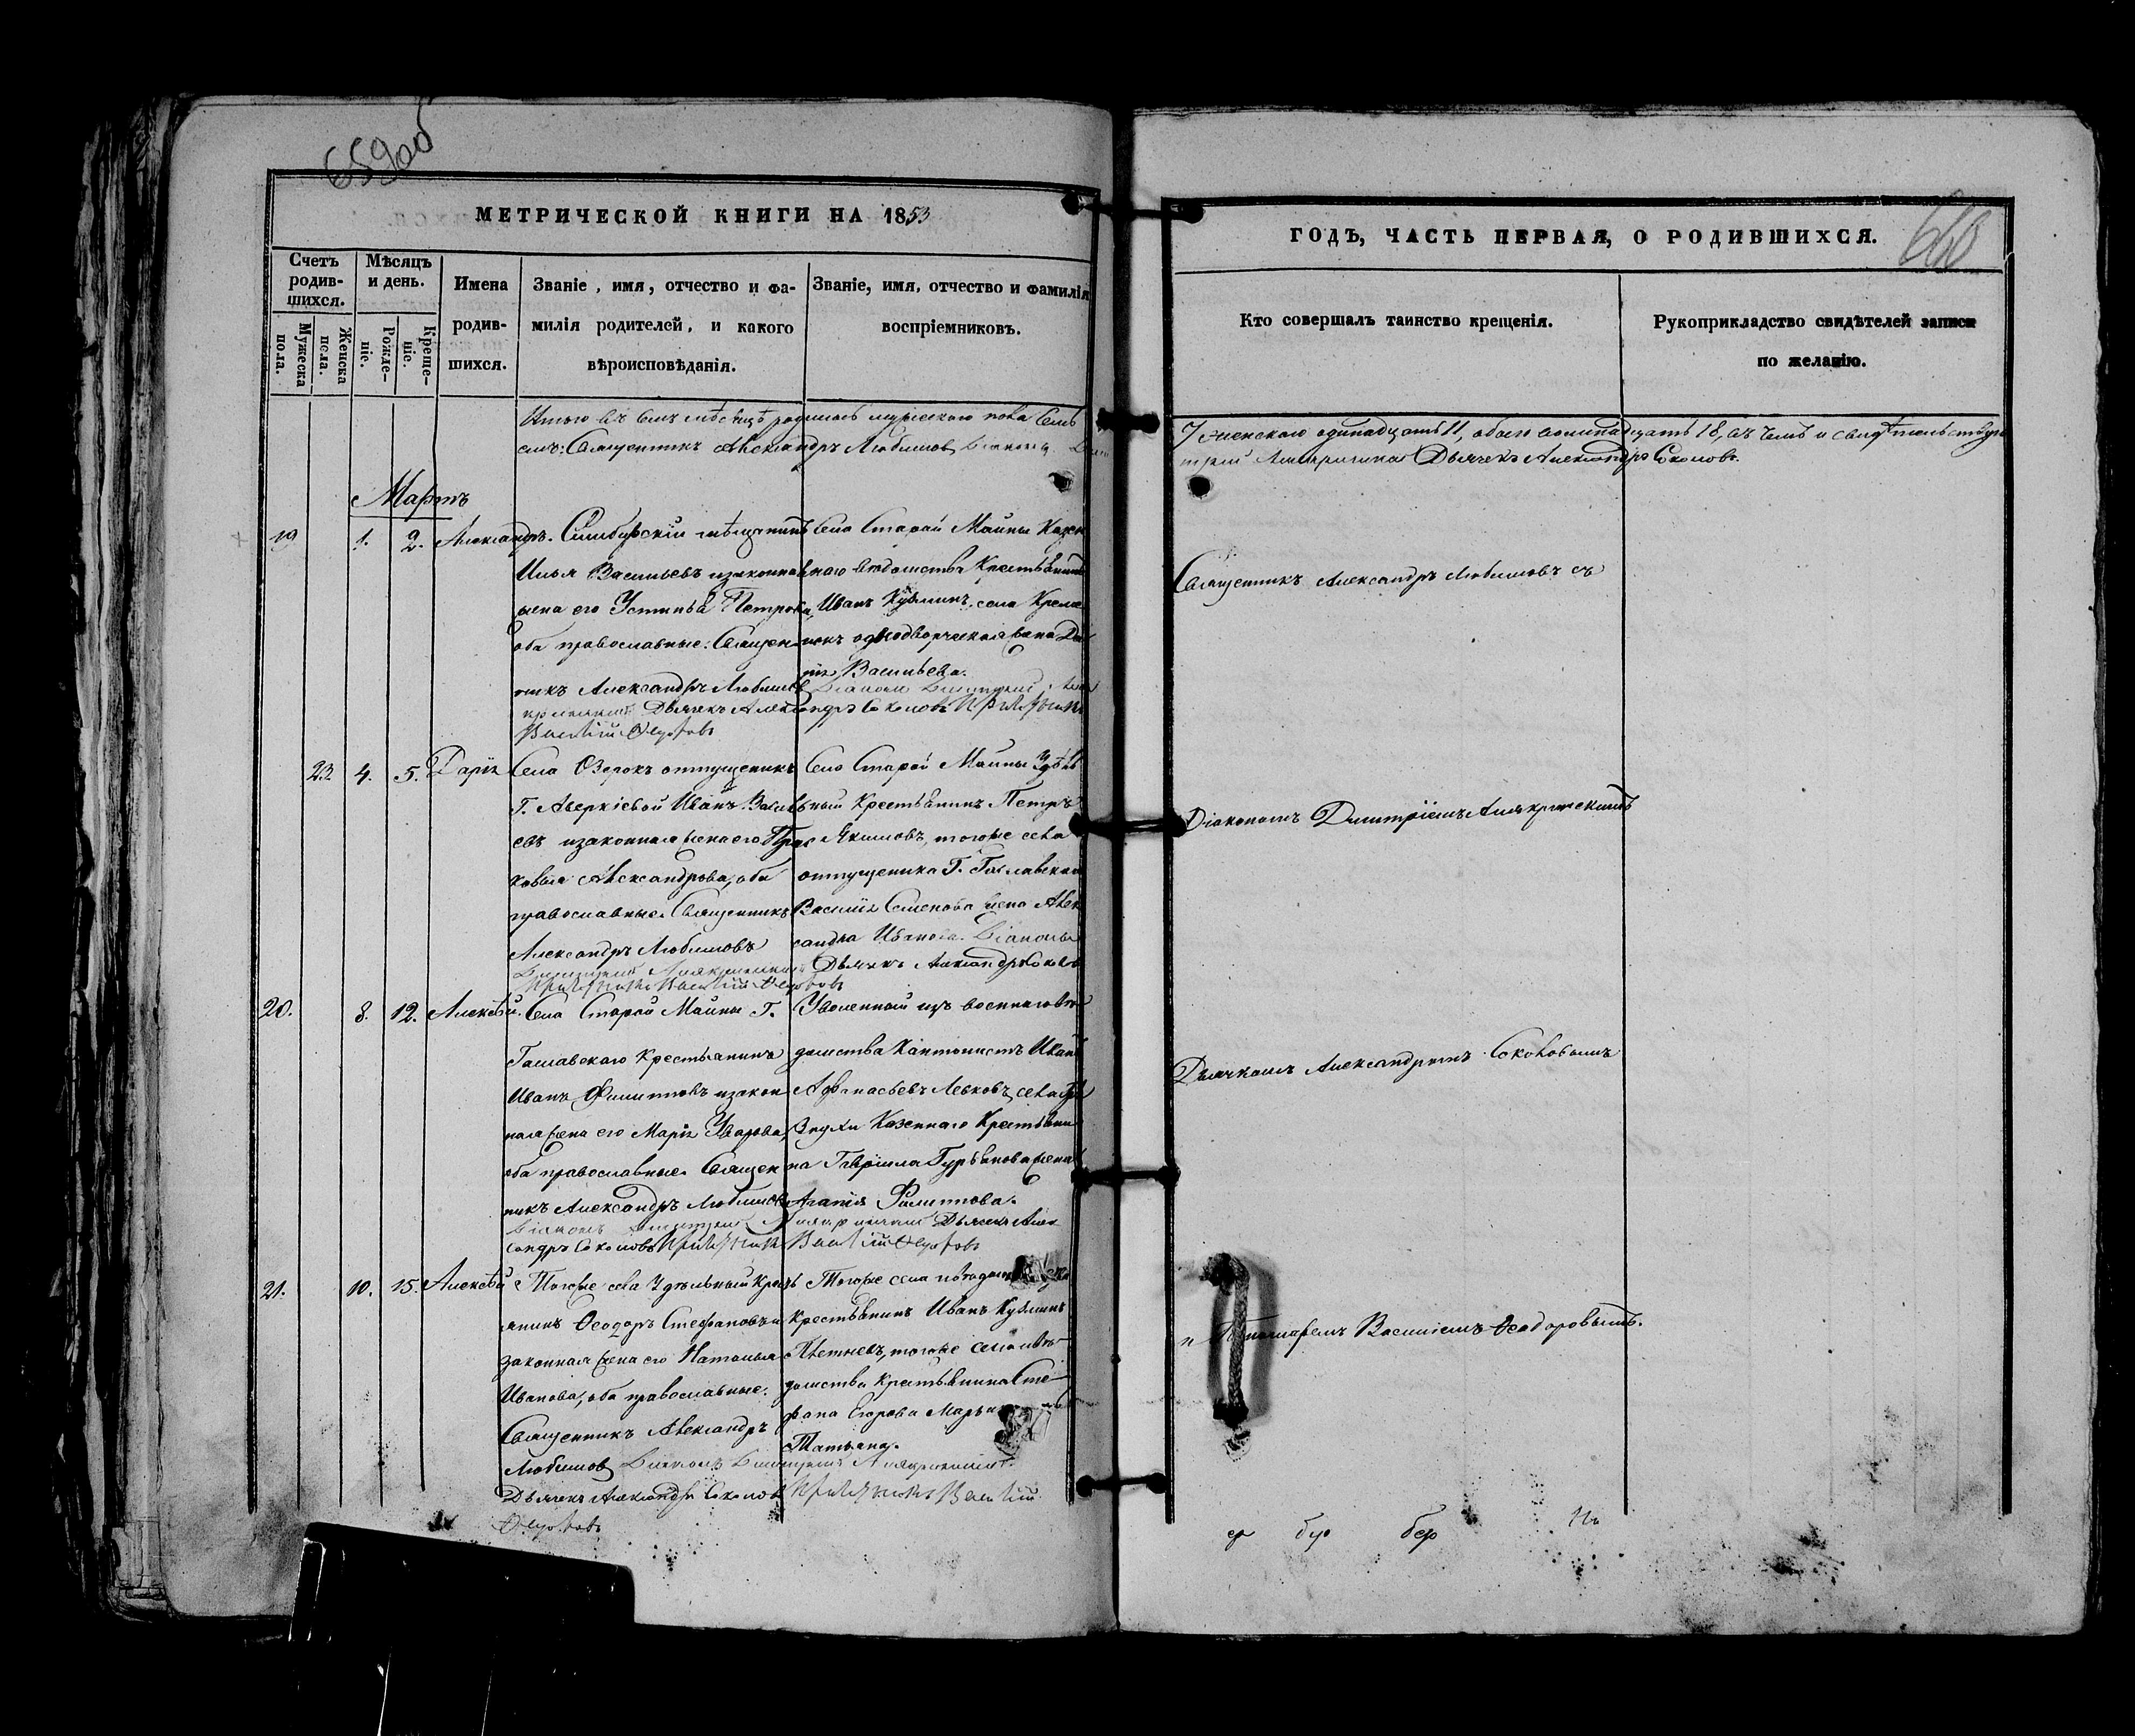 659об
МЕТРИЧЕСКОЙ КНИГИ НА 1853
Счетъ родив-шихся.
Мужеска пола.
Женска пола.
Мѣсяцъ и день.
Рожде-ніе.
Креще-ніе.
Имена родив-шихся.
Званіе, имя, отчество и фа-
милія родителей, и какого
вѣроисповѣданія.
Званіе, имя, отчество и фамилія
воспріемниковъ.
Итого въ семъ мѣсяцѣ родилось мужескаго пола семь
семъ: Священникъ Александръ Любимовъ Діаконъ
Мартъ
19 1. 2. Александръ.
Симбирскій мѣщанинъ
Илья Васильевъ и законная
жена его Устинья Петрова,
оба православные: Священ-
никъ Александръ Любимовъ
Села Старой Майны Казен
наго вѣдомства Крестьянинъ
Иванъ Кузминъ, села Креме
нокъ однодворческая жена Да
рія Васильева.
Дьячекъ Александръ Соколовъ Причетникъ
Василій Ѳедоровъ
23. 4. 5. Дарія
Села Озерокъ отпущеникъ
Г. Аверкіевой Иванъ Василь
евъ и законная жена его Прас
ковья Александрова, оба
православные. Священникъ
Александръ Любимовъ
Села Старой Майны Удѣль
ный Крестьянинъ Петръ
Якимовъ, того же села
отпущеника Г.
Василія Семенова жена Алек
сандра Иванова. Діаконъ
Дьячекъ Александръ Соколовъ
Василій Ѳедоровъ
20. 8. 12. Алексѣй.
Села Старой Майны Г.
Крестьянинъ
Иванъ Филипповъ и закон
ная жена его Марія Уварова,
оба православные. Священ
никъ Александръ Любимовъ
Уволенный изъ военнаго вѣ
домства Кантонистъ Иванъ
Афанасьевъ Левковъ, села
Казеннаго Крестьяни
на Гавріила Гурьянова жена
Агапія Филиппова.
Дьячекъ Алек
сандръ Соколовъ Василій Ѳедоровъ
21. 10. 15. Алексѣй
Того же села Удѣльный Крес
янинъ Ѳеодоръ Стефановъ и
законная жена его Наталья
Иванова, оба православные.
Священникъ Александръ
Любимовъ
Того же села
крестьянинъ Иванъ Кузминъ
того же села вѣ-
домства Крестьянина Сте-
фана Егорова
Татьяна.
Дьячекъ Александръ Соколовъ Василій
Ѳедоровъ
ГОДЪ, ЧАСТЬ ПЕРВАЯ, О РОДИВШИХСЯ.
660
Кто совершалъ таинство крещенія.
Рукоприкладство свидѣтелей записи
по желанію.
7 женскаго одинадцать 11, обоего восмнадцать 18, въ чемъ и свидѣтельствуе
Дьячекъ Александръ Соколовъ.
Священникъ Александръ Любимовъ съ
Діакономъ Дмитріемъ
Дьячкомъ Александромъ Соколовымъ
и Пономаремъ Василіемъ Ѳеодоровымъ.